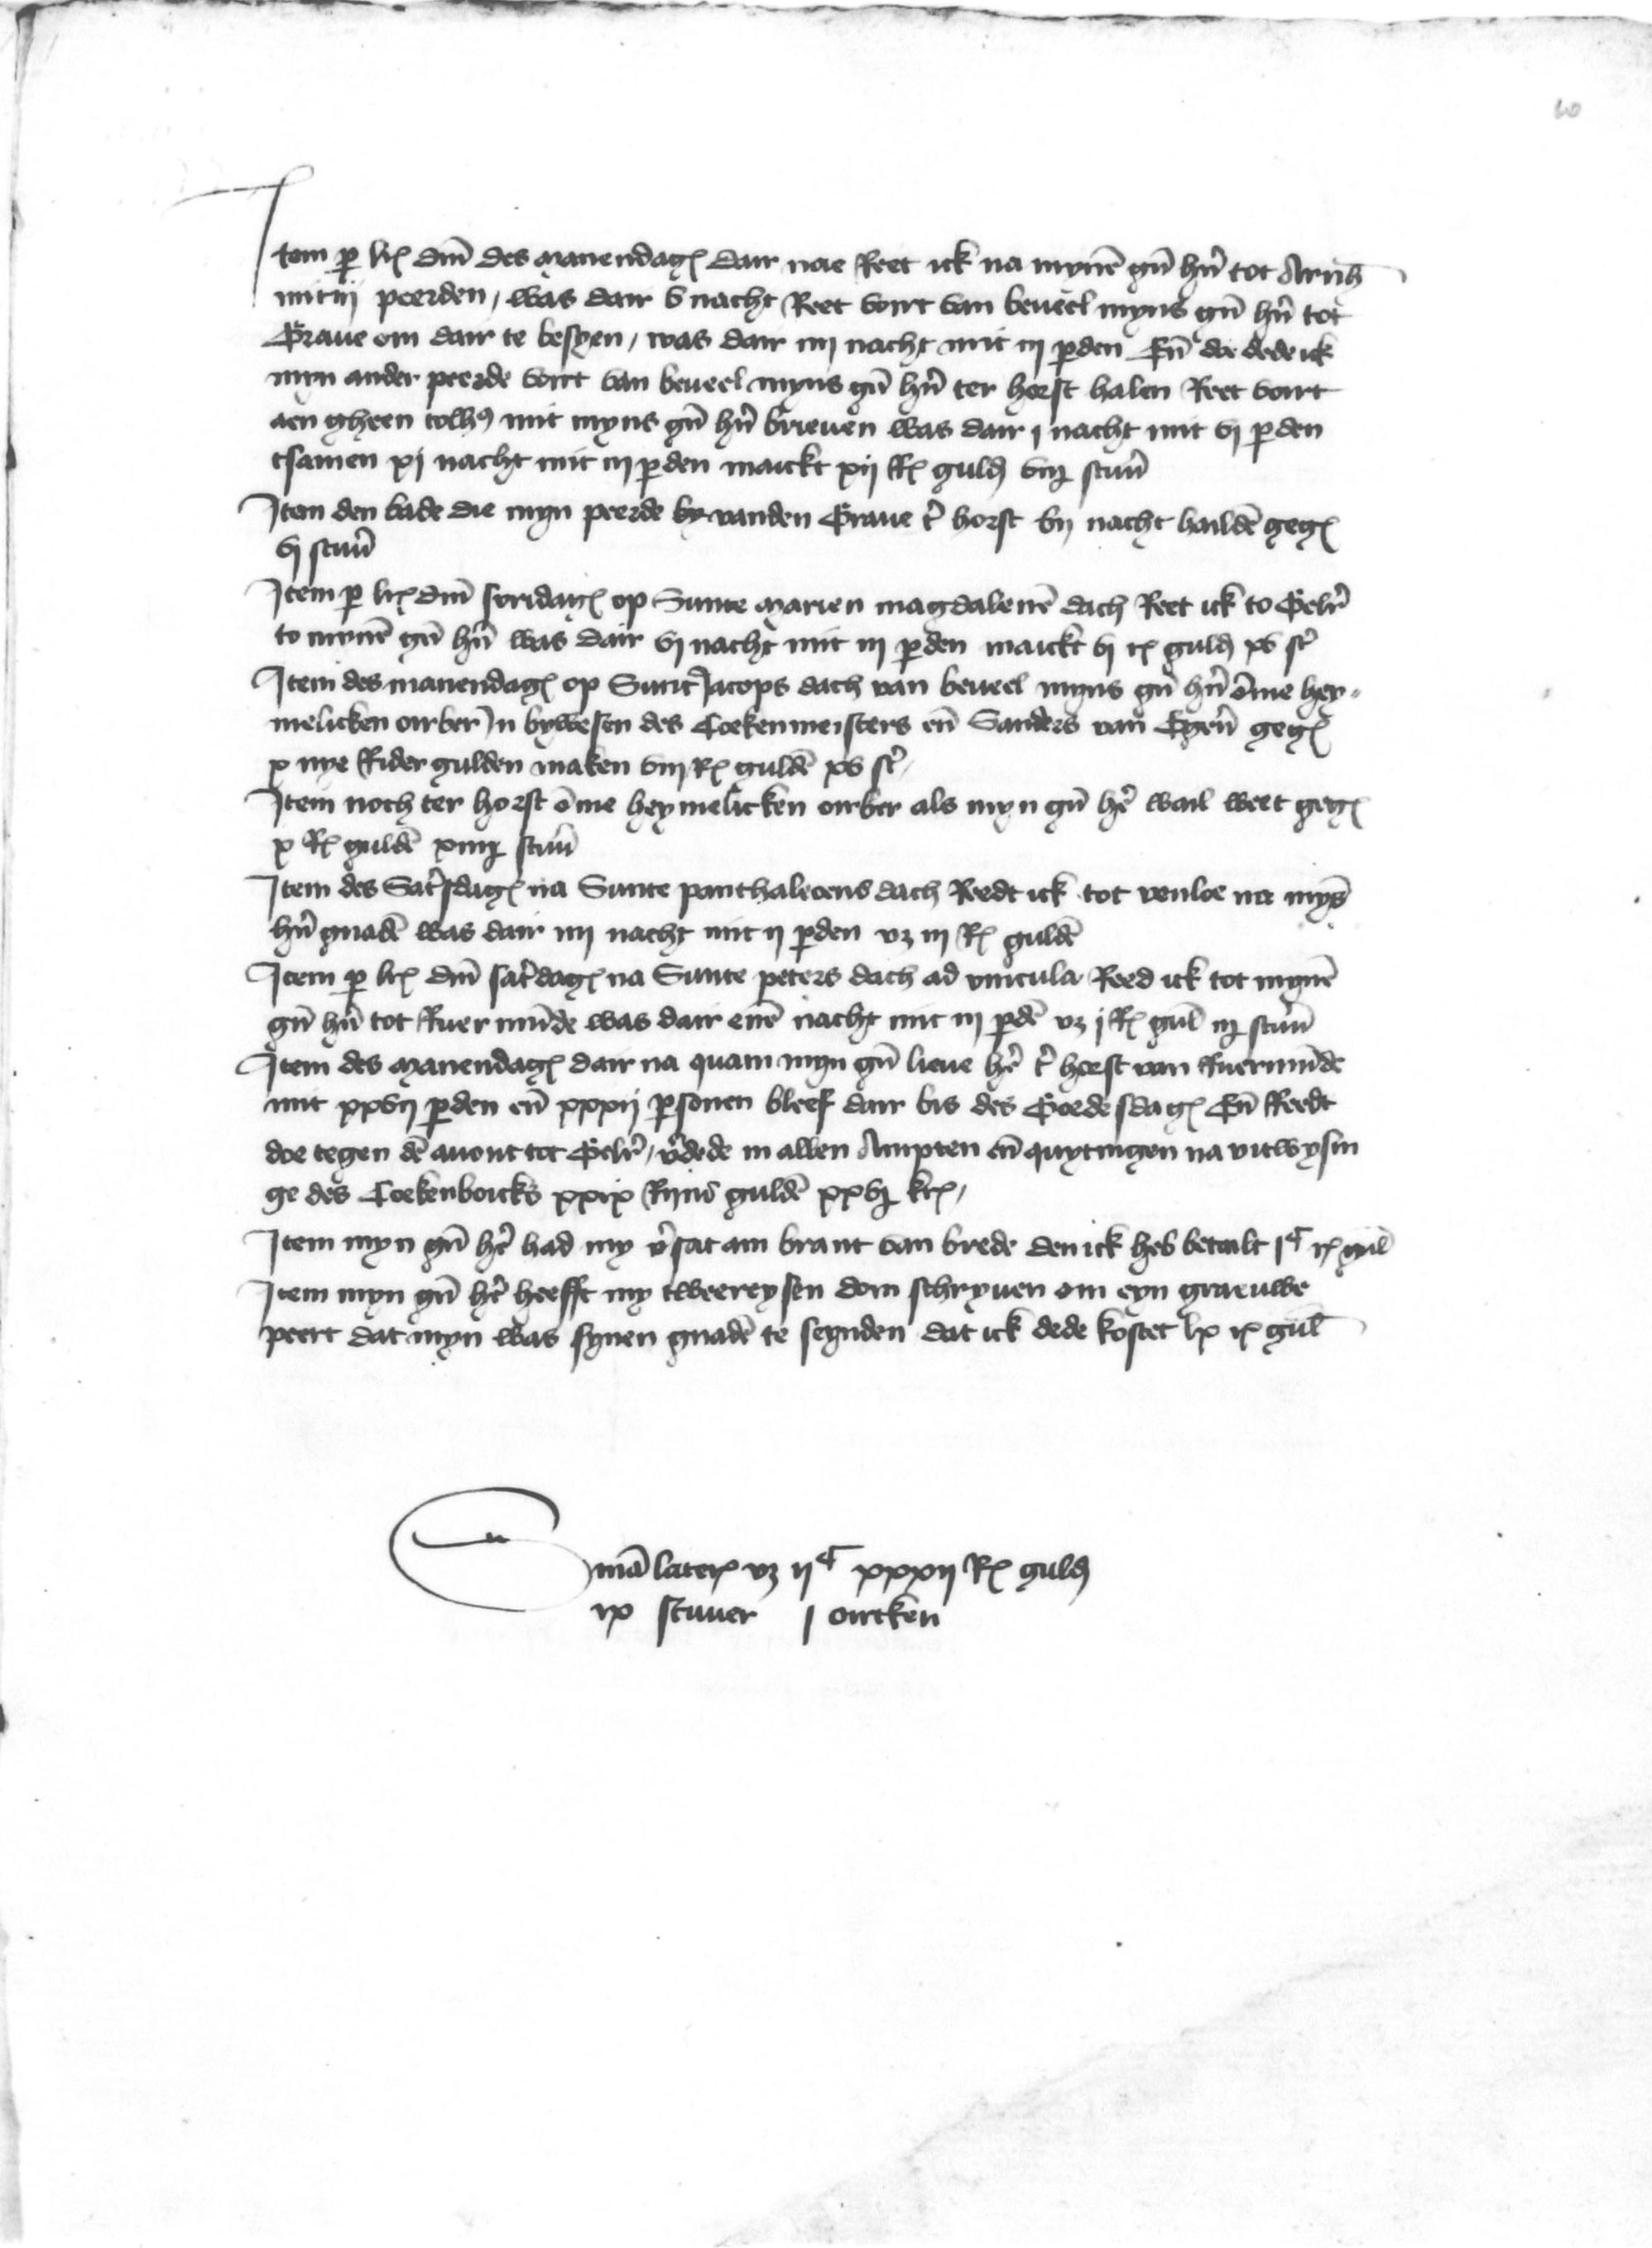 60
Item p lr dm̄ des manendagꝭ dair nae Reet ick na mynē gn̄ hn̄ tot Arnh
mit iij peerden, was dair v nacht Reet vort van beueel myns gn̄ hn̄ tot
Graue om dair te besyen, was dair iiij nacht mit iij pden En̄ doe dede ick
myn ander peerde vort van beueel myns gn̄ hn̄ ter horst halen Reet vort
aen gheen mit myns gn̄ hn̄ brieuen was dair j nacht mit vj pden
tsamen xj nacht mit iij pden maickt xij R guld stuu̅
Item den bade die myn peerde by vanden Graue t̄ horst bij nacht haildē gegꝭ
vj stuu̅
Item p lr dm̄ svridagꝭ op Sunte Marien magdalenē dach Reet ick to Gelr̄
to mynē gn̄ hn̄ was dair vj nacht mit iij pden maickt vj r guld xv st̄
Item des manendagꝭ op Sunt Jacops dach van beueel myns gn̄ hn̄ ōme hey-
melicken oirber in bywesen des Coekenmeisters en̄ Sanders van Egen̄ gegꝭ
x nye Rider gulden maken viij R guldē xv st̄,
Item noch ter horst ōme heymelicken oirber als myn gn̄ hē wail weet gegꝭ
x R guldē stuu̅
Item des Sat̄sdagꝭ na Sunte panthaleoens dach Reedt ick tot venloe na mys̄
hn̄ gnadē was dair iiij nacht mit ij pden vz iij R guldē
Item p lr dm̄ sat̄dagꝭ na Sunte peters dach ad vincula Reed ick tot mynē
gn̄ hn̄ tot Ruermūde was dair enē nacht mit iij pdē vz j R gul̄ stuu̅
Item des manendagꝭ dair na quam myn gn̄ lieue hē t̄ horst van Ruermūde
mit xxvij pden en̄ xxxij psonen bleef dair bis des Goedesdagꝭ En̄ Reedt
doe tegen dē auont tot Gelr̄, v̄dede in allen Ampten en̄ quytingen na vitwysin
ge des Coekenboicks xxix Rijns̄ guldē krꝭ,
Item myn gn̄ hē had my v̄sat am brant van brede den ick heb betailt jC r gul̄
Item myn gn̄ hē heefft my tweereysen doin schryuen om eyn graeuwe
peert dat myn was synen gnadē te seynden dat ick dede kostet lx r gul̄
Sūma laterꝭ vz ijC xxxij R guld
ix stuuer j oirtken